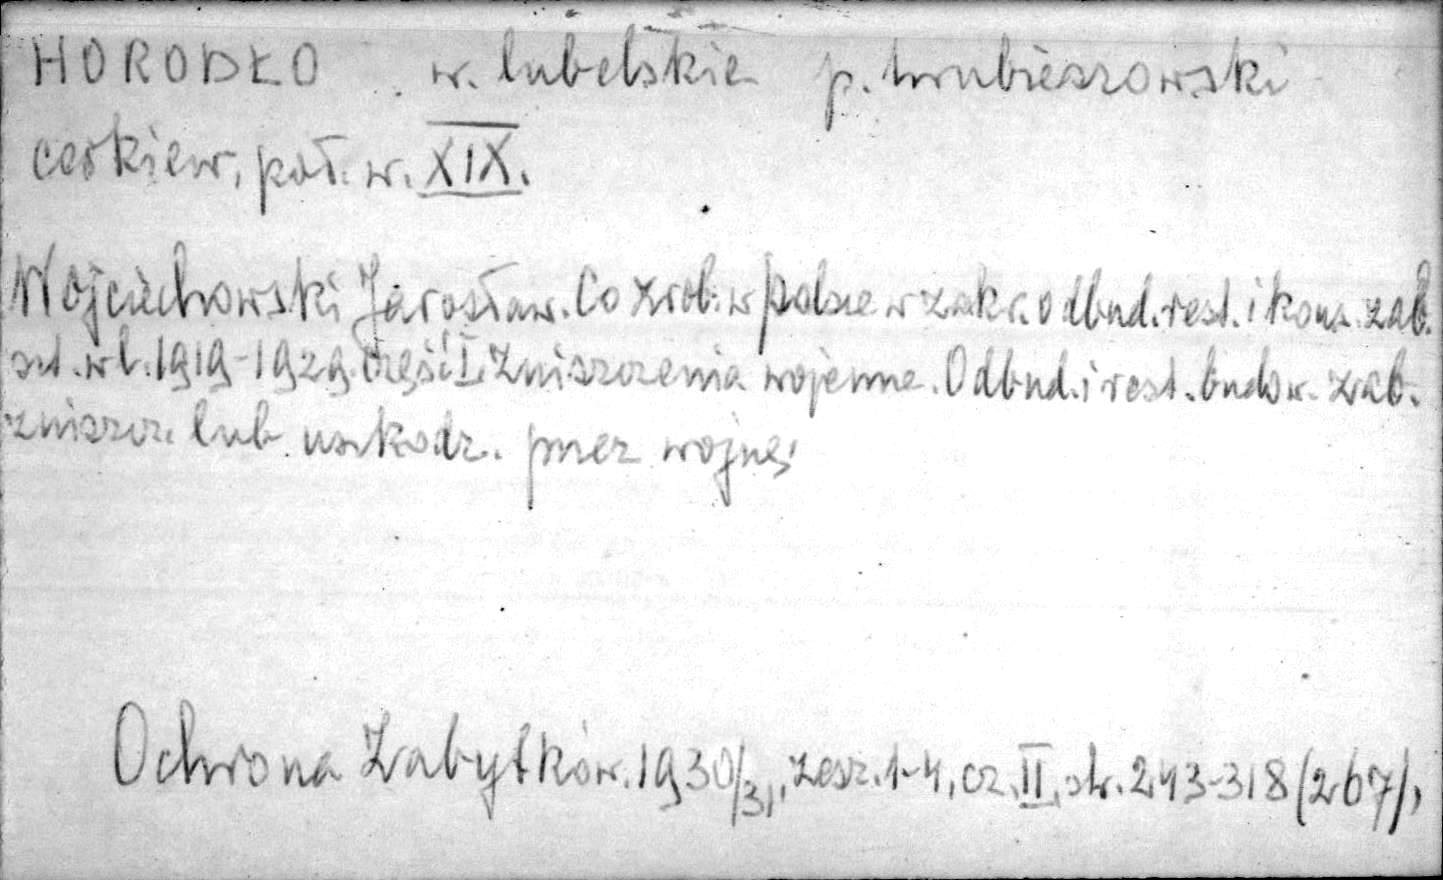 HORODŁO w. lubelskie p. hrubieszowski
cerkiew, poł. w. XIX.
Wojciechowski Jarosław. Co zrob. w Polsce w zakr. odbud. rest. i kons. zab.
szt. w l. 1919-1929. Część I. Zniszczenia wojenne. Odbud. i rest. budow. zab.
zniszcz. lub uszkodz. przez wojnę,
Ochrona Zabytków. 1930/31, zesz. 1-4, cz. II, str. 243-318 (267),